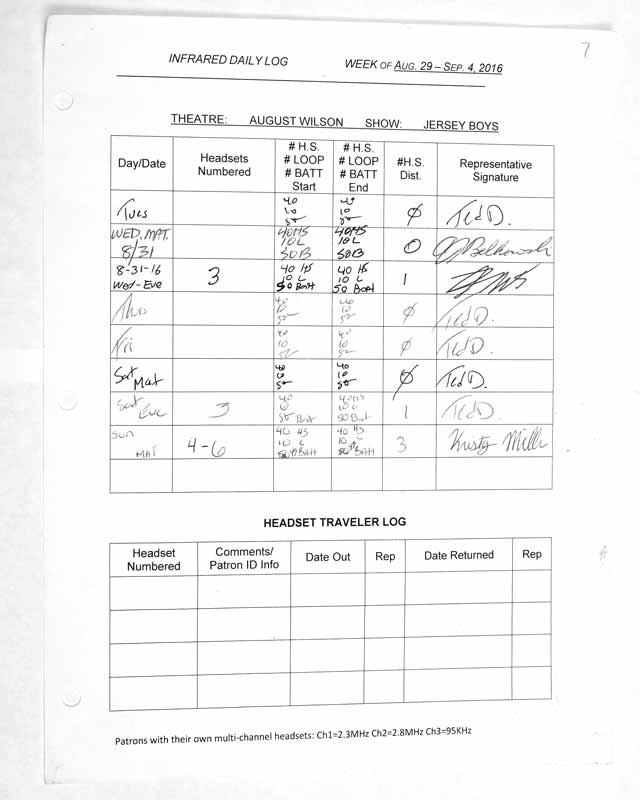 7
INFRARED DAILY LOG WEEK OF AUG. 29 – SEP. 4, 2016
THEATRE: AUGUST WILSON SHOW: JERSEY BOYS
Day/Date Headsets Numbered # H.S. # LOOP # BATT Start # H.S. # LOOP # BATT End #H.S. Dist. Representative Signature
Tues 40 10 50 40 10 50 Ø Ted D.
WED. MAT. 8/31 40HS 10L 50B 40HS 10L 50B 0
8-31-16 Wed-Eve 3 40 HS 10 L 50 Batt 40 HS 10 L 50 Batt 1
Thurs 40 10 50 40 10 50 Ø Ted D.
Fri 40 10 50 40 10 50 Ø Ted D.
Sat Mat 40 10 50 40 10 50 Ø Ted D.
Sat Eve 3 40 10 50 Batt 40HS 10 L 50 Bat 1 Ted D.
Sun MAT 4-6 40 HS 10 L 50 BATT 40 HS 10 L 50 BATT 3 Kristy Miller
HEADSET TRAVELER LOG
Headset Numbered Comments/ Patron ID Info Date Out Rep Date Returned Rep
Patrons with their own multi-channel headsets: Ch1=2.3MHz Ch2=2.8MHz Ch3=95KHz